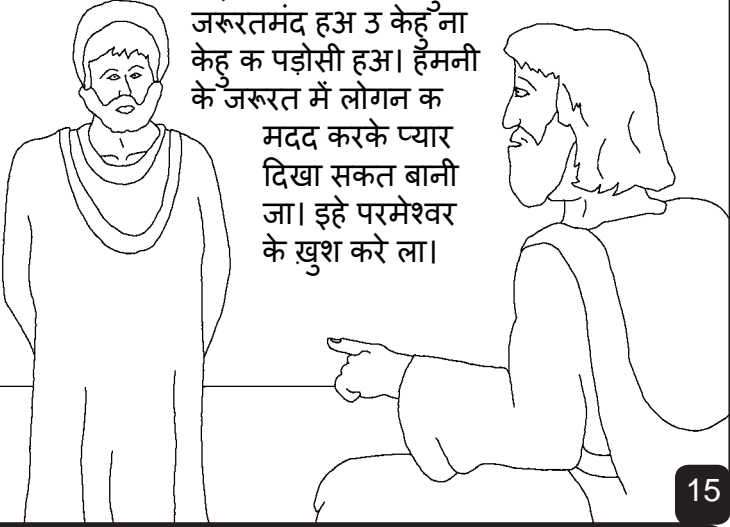 जरूरतमंद हअ उ केहू ना
केहू क पड़ोसी हअ। हमनी
के जरूरत में लोगन क
मदद करके प्यार
दिखा सकत बानी
जा। इहे परमेश्वर
के ख़ुश करे ला।
15